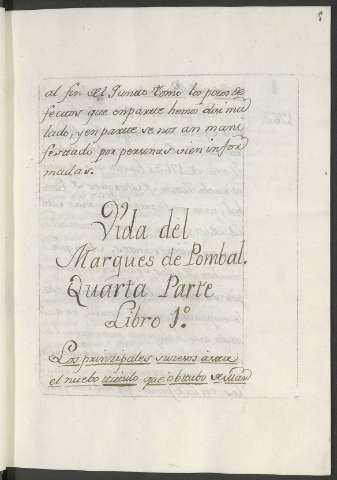 al fin del quinto tomo los pocos de
fectos que en parte hemos disimu
lado, y en parte se nos an mani
festado por personas vien infor
madas.
Vida del
Marques de Pombal.
Quarta Parte
Libro 1.º
Los prinzipales sucesos
el nuebo titulo que obtubo